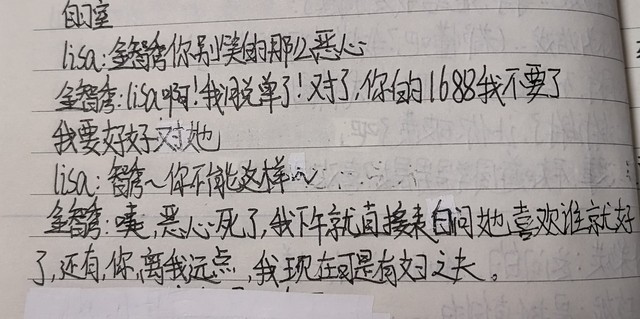 自习室
lisa：金智秀你别笑的那么恶心
金智秀：lisa啊！我脱单了！对了，你的1688我不要了
我要好好对她
lisa：智秀～你不能这样～
金智秀：咦，恶心死了，我下午就直接表白问她，喜欢谁就好
了，还有，你，离我远点，我现在可是有妇之夫。